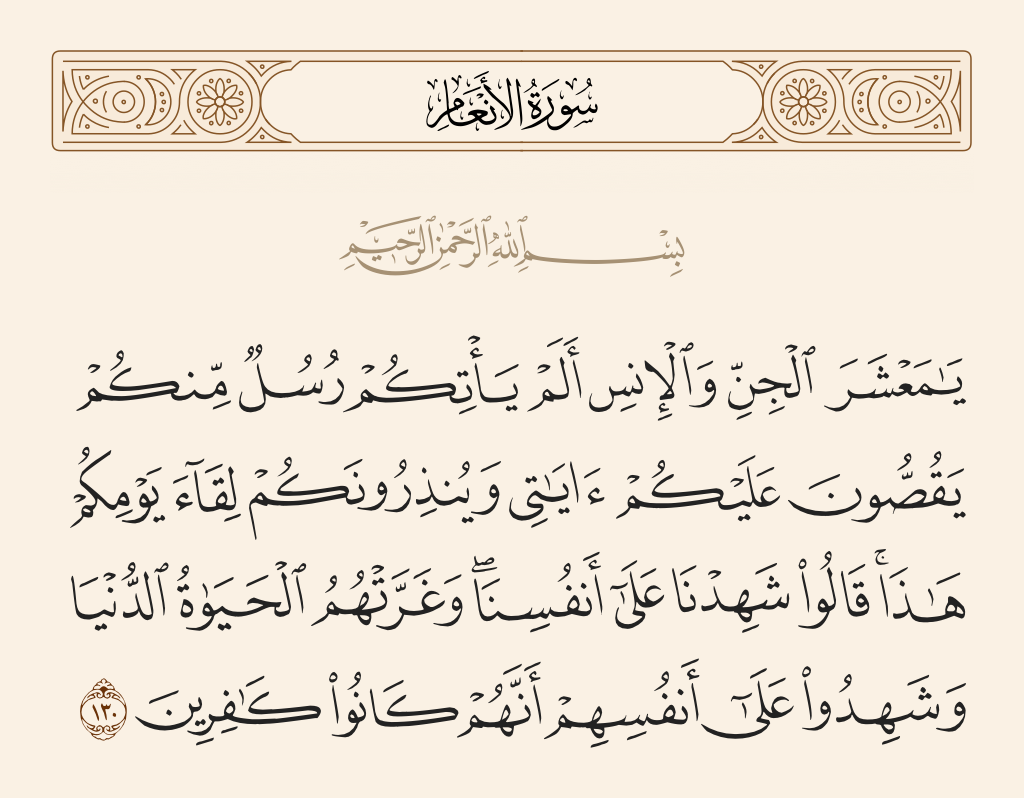 سُورَةُ الأَنْعَامِ
بِسْمِ ٱللَّهِ ٱلرَّحْمَٰنِ ٱلرَّحِيمِ
يَـٰمَعْشَرَ ٱلْجِنِّ وَٱلْإِنسِ أَلَمْ يَأْتِكُمْ رُسُلٌ مِّنكُمْ
يَقُصُّونَ عَلَيْكُمْ ءَايَـٰتِى وَيُنذِرُونَكُمْ لِقَآءَ يَوْمِكُمْ
هَـٰذَا ۚ قَالُوا۟ شَهِدْنَا عَلَىٰٓ أَنفُسِنَا ۖ وَغَرَّتْهُمُ ٱلْحَيَوٰةُ ٱلدُّنْيَا
وَشَهِدُوا۟ عَلَىٰٓ أَنفُسِهِمْ أَنَّهُمْ كَانُوا۟ كَـٰفِرِينَ ١٣٠